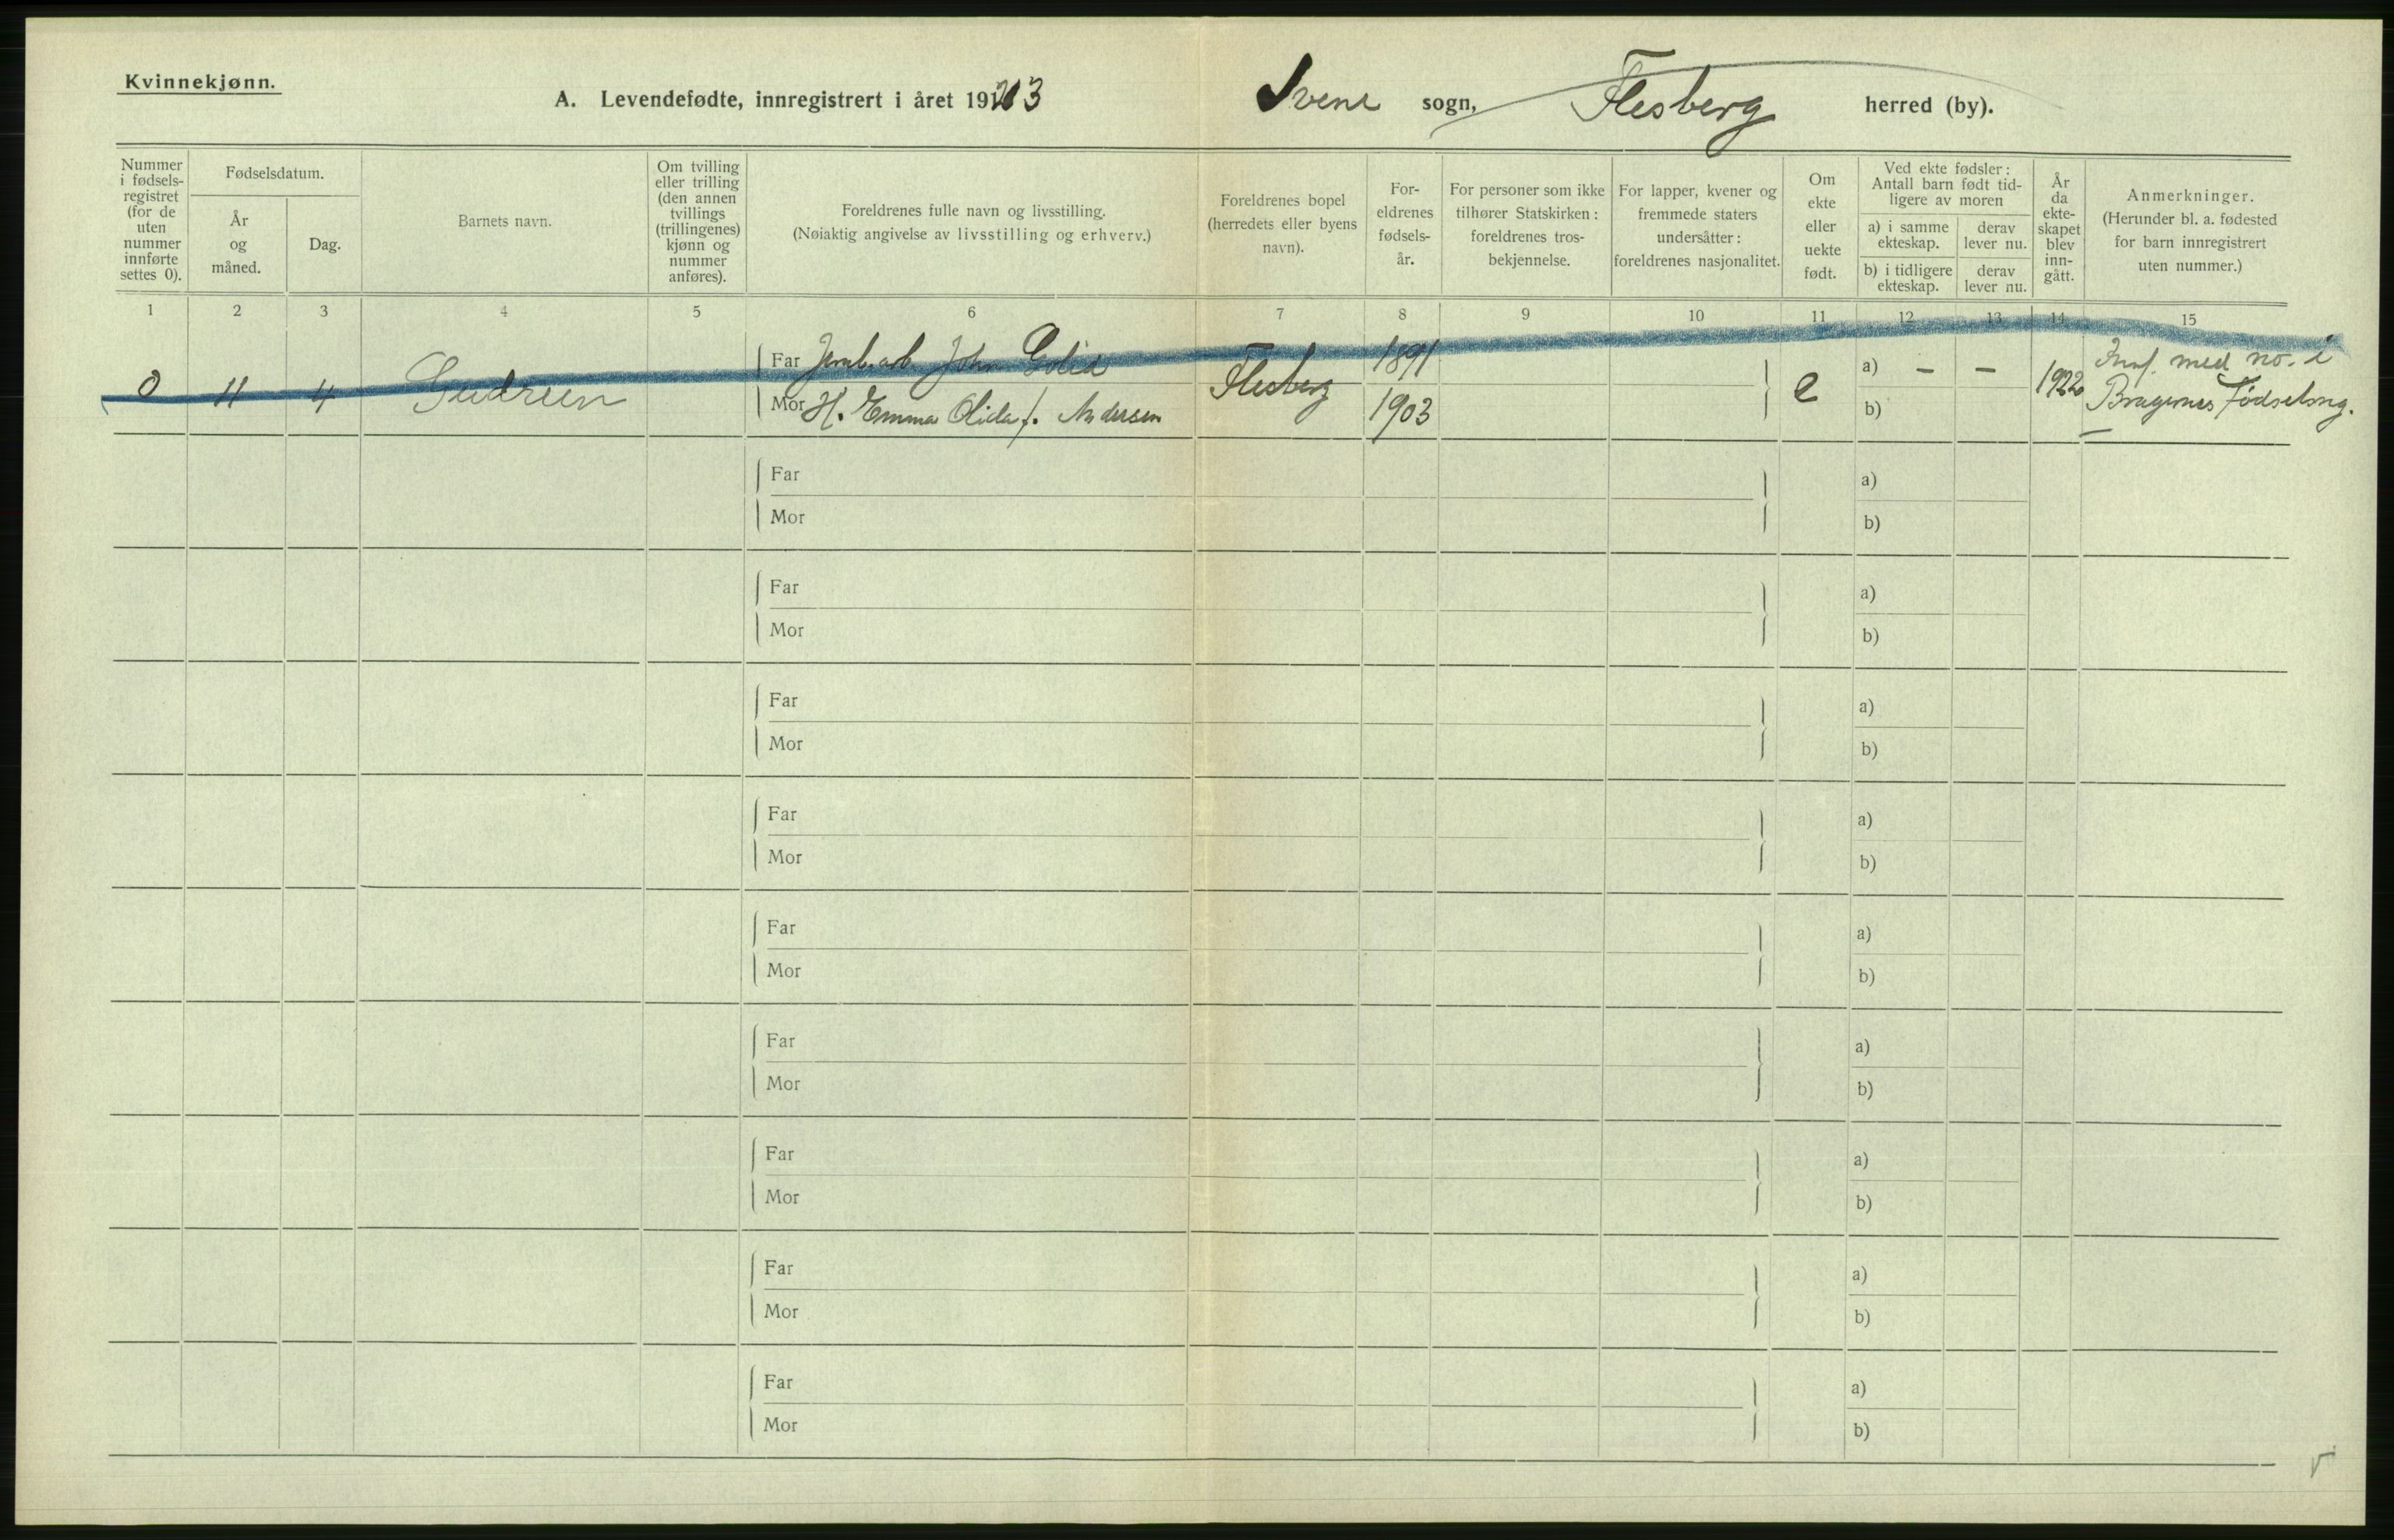 Kvinnekjønn.
A. Levendefødte, innregistrert i året 1923 Svene sogn, Flesberg herred (by).
Nummer i fødsels-registret (for de uten nummer innførte settes 0).
Fødselsdatum.
År og måned.
Dag.
Barnets navn.
Om tvilling eller trilling (den annen tvillings (trillingenes) kjønn og nummer anføres).
Foreldrenes fulle navn og livsstilling.
(Nøiaktig angivelse av livsstilling og erhverv.)
Foreldrenes bopel (herredets eller byens navn).
For-eldrenes fødsels-år.
For personer som ikke tilhører Statskirken: foreldrenes tros-bekjennelse.
For lapper, kvener og fremmede staters undersåtter: foreldrenes nasjonalitet.
Om ekte eller uekte født.
Ved ekte fødsler: Antall barn født tid-ligere av moren
a) i samme ekteskap.
derav lever nu.
b) i tidligere ekteskap.
derav lever nu.
År da ekte-skapet blev inn-gått.
Anmerkninger.
(Herunder bl. a. fødested for barn innregistrert uten nummer.)
1 2 3 4 5 6 7 8 9 10 11 12 13 14 15
Far Jernb.arb. John 1891 a) – – Innf. med no. i
0 4 Gudrun Flesberg e 1922
Mor H. Emma Olida f. Andersen 1903 b) Bragernes Fødselsreg.
Far a)
Mor b)
Far a)
Mor b)
Far a)
Mor b)
Far a)
Mor b)
Far a)
Mor b)
Far a)
Mor b)
Far a)
Mor b)
Far a)
Mor b)
Far a)
Mor b)